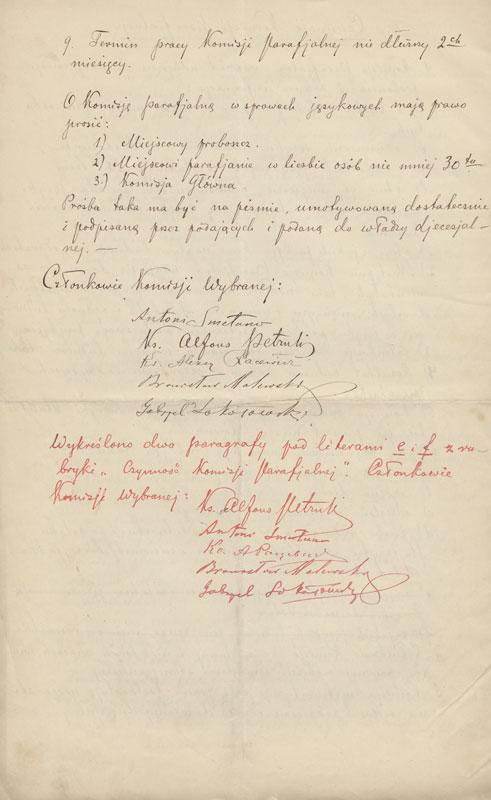 9. Termin pracy Komisji Parafjalnej nie dłuższy 2ch
miesięcy.
O Komisję parafjalną w sprawach językowych mają prawo
prosić:
1) Miejscowy proboszcz.
2) Miejscowi parafjanie w liczbie osób nie mniej 30tu
3) Komisja Główna
Prośba taka ma być na piśmie, umotywowaną dostatecznie
i podpisaną przez podających i podaną do władzy djecezjal-
nej. —
Członkowie Komisji Wybranej:
Antoni
Ks. Alfons Petrulis
Ks.
Bronisław
Gabryel
Wykreślono dwa paragrafy pod literami e i f z ru-
bryki „Czynność Komisji Parafjalnej". Członkowie
Komisji Wybranej:
Ks. Alfons Petrulis
Antoni
Ks. A
Bronisław
Gabryel